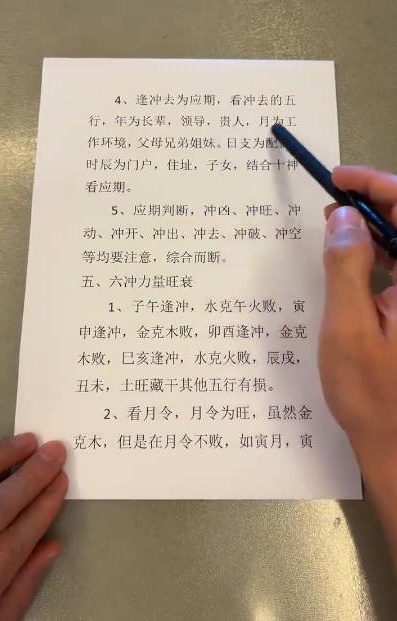 4、逢冲去为应期，看冲去的五
行，年为长辈，领导，贵人，月为工
作环境，父母兄弟姐妹。日支为配
时辰为门户，住址，子女，结合十神
看应期。
5、应期判断，冲凶、冲旺、冲
动、冲开、冲出、冲去、冲破、冲空
等均要注意，综合而断。
五、六冲力量旺衰
1、子午逢冲，水克午火败，寅
申逢冲，金克木败，卯酉逢冲，金克
木败，巳亥逢冲，水克火败，辰戌，
丑未，土旺藏干其他五行有损。
2、看月令，月令为旺，虽然金
克木，但是在月令不败，如寅月，寅